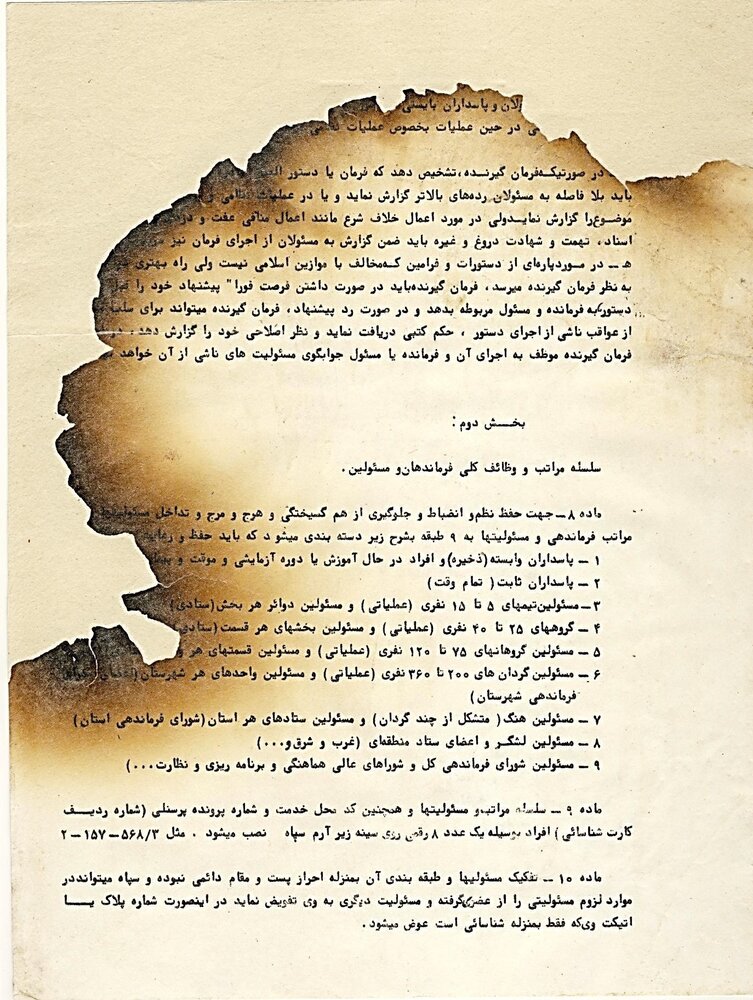 لان و پاسداران بایستی
در حین عملیات بخصوص عملیات
در صورتیکه‌فرمان گیرنده،تشخیص دهد که فرمان یا دستور
باید بلا فاصله به مسئولان رده‌های بالاتر گزارش نماید و یا در عملیات نظامی
موضوع‌را گزارش نماید‌ولی در مورد اعمال خلاف شرع مانند اعمال منافی عفت و
اسناد، تهمت و شهادت دروغ و غیره باید ضمن گزارش به مسئولان از اجرای فرمان نیز
هـ ــ در مـوردپاره‌ای از دستورات و فرامین کـه‌مخالف با موازین اسلامی نیست ولی راه بهتری
به نظر فرمان گیرنده میرسد، فرمان گیرنده‌باید در صورت داشتن فرصت فورا" پیشنهاد خود را
دستور‌به فرمانده و مسئول مربوطه بدهد و در صورت رد پیشنهاد، فرمان گیرنده میتواند برای
از عواقب ناشی از اجرای دستور ، حکم کتبی دریافت نماید و نظر اصلاحی خود را گزارش دهد،
فرمان گیرنده موظف به اجرای آن و فرمانده یا مسئول جوابگوی مسئولیت های ناشی از آن خواهد
بخــش دوم :
سلسله مراتب و وظائف کلی فرماندهان‌و مسئولین .
ماده ۸ ــ جهت حفظ نظم‌و انضباط و جلوگیری از هم گسیختگی و هرج و مرج و تداخل مسئولیتها
مراتب فرماندهی و مسئولیتها به ۹ طبقه بشرح زیر دسته بندی میشو د که باید حفظ و رعایت
۱ ــ پاسداران وابسته (ذخیره)و افراد در حال آموزش یا دوره آزمایشی و موقت و
۲ ــ پاسداران ثابت ( تمام وقت )
۳ــ مسئولین‌تیمهای ۵ تا ۱۵ نفری (عملیاتی ) و مسئولین دوائر هر بخش (ستادی)
۴ ــ گروههای ۲۵ تا ۴۰ نفری (عملیاتی ) و مسئولین بخشهای هر قسمت (ستادی)
۵ ــ مسئولین گروهانهای ۷۵ تا ۱۲۰ نفری (عملیاتی ) و مسئولین قسمتهای هر
۶ ــ مسئولین گردان های ۲۰۰ تا ۳۶۰ نفری (عملیاتی ) و مسئولین واحدهای هر شهرستان
فرماندهی شهرستان )
۷ ــ مسئولین هنگ ( متشکل از چند گردان ) و مسئولین ستادهای هر استان (شورای فرماندهی استان )
۸ ــ مسئولین لشگـر و اعضای ستاد منطقه‌ای (غرب و شرق‌و...)
۹ ــ مسئولین شورای فرماندهی کل و شوراهای عالی هماهنگی و برنامه ریزی و نظارت...)
ماده ۹ ــ سلسله مراتب‌و مسئولیتها و همچنین کد محل خدمت و شماره پرونده پرسنلی (شماره ردیـف
کارت شناسائی ) افراد بوسیله یک عدد ۸ رقمی روی سینه زیر آرم سپاه نصب میشود . مثل ۵۶۸/۳ــ۱۵۷ــ۲
ماده ۱۰ ــ تفکیک مسئولیها و طبقه بندی آن بمنزله احراز پست و مقام دائمی نبوده و سپاه میتواند‌در
موارد لزوم مسئولیتی را از عضوی‌گرفته و مسئولیت دیگری به وی تفویض نماید در اینصورت شماره پلاک یـا
اتیکت وی‌که فقط بمنزله شناسائی است عوض میشود .